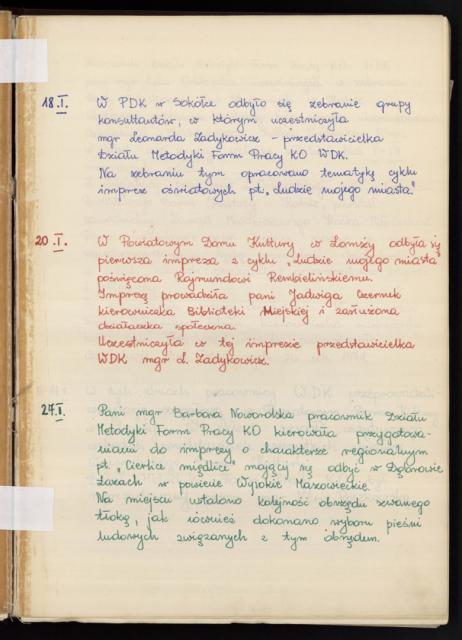 18.I. W PDK w Sokółce odbyło się zebranie grupy
konsultantów, w którym uczestniczyła
mgr Leonarda Zadykowicz - przedstawicielka
Działu Metodyki Form Pracy KO WDK.
Na zebraniu tym opracowano tematykę cyklu
imprez oświatowych pt. „Ludzie mojego miasta."
20.I. W Powiatowym Domu Kultury w Łomży odbyła się
pierwsza impreza z cyklu „Ludzie mojego miasta"
poświęcona Rajmundowi Rembielińskiemu.
Imprezę prowadziła pani Jadwiga Czernik
kierowniczka Biblioteki Miejskiej i zasłużona
działaczka społeczna.
Uczestniczyła w tej imprezie przedstawicielka
WDK mgr L. Zadykowicz.
27.I. Pani mgr Barbara Noworolska pracownik Działu
Metodyki Form Pracy KO kierowała przygotowa-
niami do imprezy o charakterze regionalnym
pt. „Cierlice międlici" mającej się odbyć w Dąbrowie
Łazach w powiecie Wysokie Mazowieckie.
Na miejscu ustalono kolejność obrzędu zwanego
tłoką, jak również dokonano wyboru pieśni
ludowych związanych z tym obrzędem.